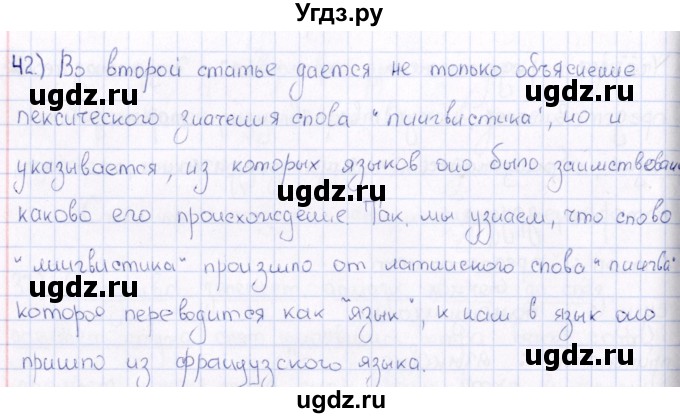 Угдз.ру
42.) Во второй статье дается не только объяснение
лексического значения слова "лингвистика", но и
ugdz.ru ugdz.ru
указывается, из которых языков оно было заимствовано
каково его происхождение. Так, мы узнаем, что слово
ugdz.ru ugdz.ru
"лингвистика" произошло от латинского слова "лингва"
которое переводится как "язык", к нам в язык оно
ugdz.ru ugdz.ru
пришло из французского языка.
ugdz.ru